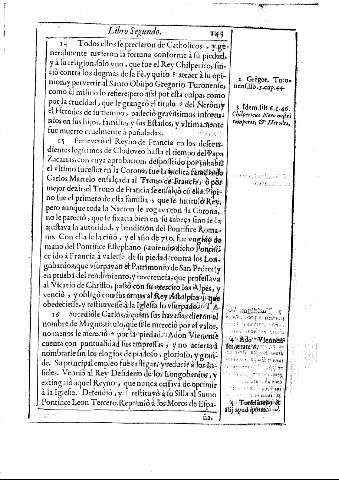 Libro Segundo. 243
14 Todos ellos se preciaron de Catholicos, y ge-
neralmente tuvieron la fortuna conforme à su piedad,
y à su religion. Solo vno, que fue el Rey Chilperico, sin-
tiò contra los dogmas de la Fè, y quiso atraer à su opi-
nion, y pervertir al Santo Obispo Gregorio Turonense,
como èl mismo lo refiere; pero assi por esta culpa, como
por la crueldad, que le grangeò el titulo del Neron, y
el Herodes de su tiempo, padeciò gravissimos infortu-
nios en sus hijos, familia, y sus Estados, y vltimamente
fue muerto cruelmente à puñaladas.
15 Perseverò el Reyno de Francia en los descen-
dientes legitimos de Clodoveo hasta el tiempo del Papa
Zacarias, con cuya aprobacion, despossido por inhabil
el vltimo sucessor en la Corona, fue la inclita familia de
Carlos Martelo ensalçada al Trono de Francia; ò por
mejor dezir el Trono de Francia se ensalçò en ella. Pipi-
no fue el primero de esta familia, que se intitulò Rey,
pero aunque toda la Nacion le rogava con la Corona,
no le pareciò, que se fixaria bien en su cabeça sino se la
ajustava la autoridad, y bendicion del Pontifice Roma-
no. Con ella se la ciñò, y el año de 750. fue vngido de
mano del Pontifice Estephano (aviendo dicho Pontifi-
ce ido à Francia à valerse de su piedad contra los Lon-
gobardos, que vsurpavan el Patrimonio de San Pedro) y
en prueba del rendimiento, y reverencia, que professava
al Vicario de Christo, passò con su exercito los Alpes, y
venciò, y obligò con sus armas al Rey Astulpho à que
obedeciesse, y restituyesse à la Iglesia lo vsurpado.
16 Sucediòle Carlos, à quien sus hazañas dieron el
nombre de Magno; titulo, que si le mereciò por el valor,
no menos le mereciò por la piedad. Adon Vienense
cuenta con puntualidad sus empressas, y no acierta à
nombrarle sin los elogios de piadoso, glorioso, y gran-
de. Su principal empleo fue assegurar, y reducir à los in-
fieles. Venciò al Rey Desiderio de los Longobardos, y
extinguiò aquel Reyno, que nunca cessava de oprimir
à la Iglesia. Defendiò, y restituyò à su Silla al Sumo
Pontifice Leon Tercero. Reprimiò à los Moros de Espa-
ña,
2 Gregor. Turo-
nens. lib. 5. cap. 44
3 Idem lib. 6. c. 46.
Chilpericus Nero nostri
temporis, & Herodes.
4 Ado Viennens.
in ætate 6.